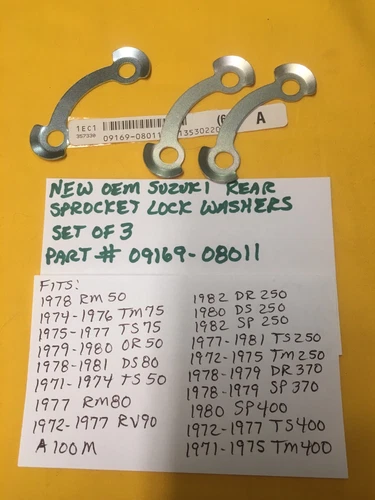 1EC1
357339
09169-08011
13530220
A
NEW OEM SUZUKI REAR
SPROCKET LOCK WASHERS
SET OF 3
PART # 09169-08011
FITS:
1978 RM50
1974-1976 TM75
1975-1977 TS75
1979-1980 OR50
1978-1981 DS80
1971-1974 TS50
1977 RM80
1972-1977 RV90
A100M
1982 DR250
1980 DS250
1982 SP250
1977-1981 TS250
1972-1975 TM250
1978-1979 DR370
1978-1979 SP370
1980 SP400
1972-1977 TS400
1971-1975 TM400